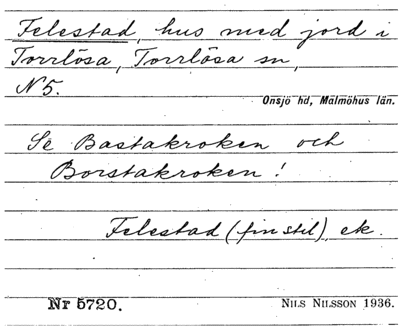 Felestad, hus med jord i
Torrlösa, Torrlösa sn,
N 5.
Onsjö hd, Malmöhus län.
Se Bastakroken och
Borstakroken!
Felestad (fin stil), ek.
Nr 5720.
NILS NILSSON 1936.